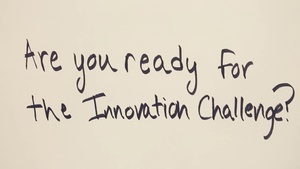 Are you ready for
the Innovation Challenge?